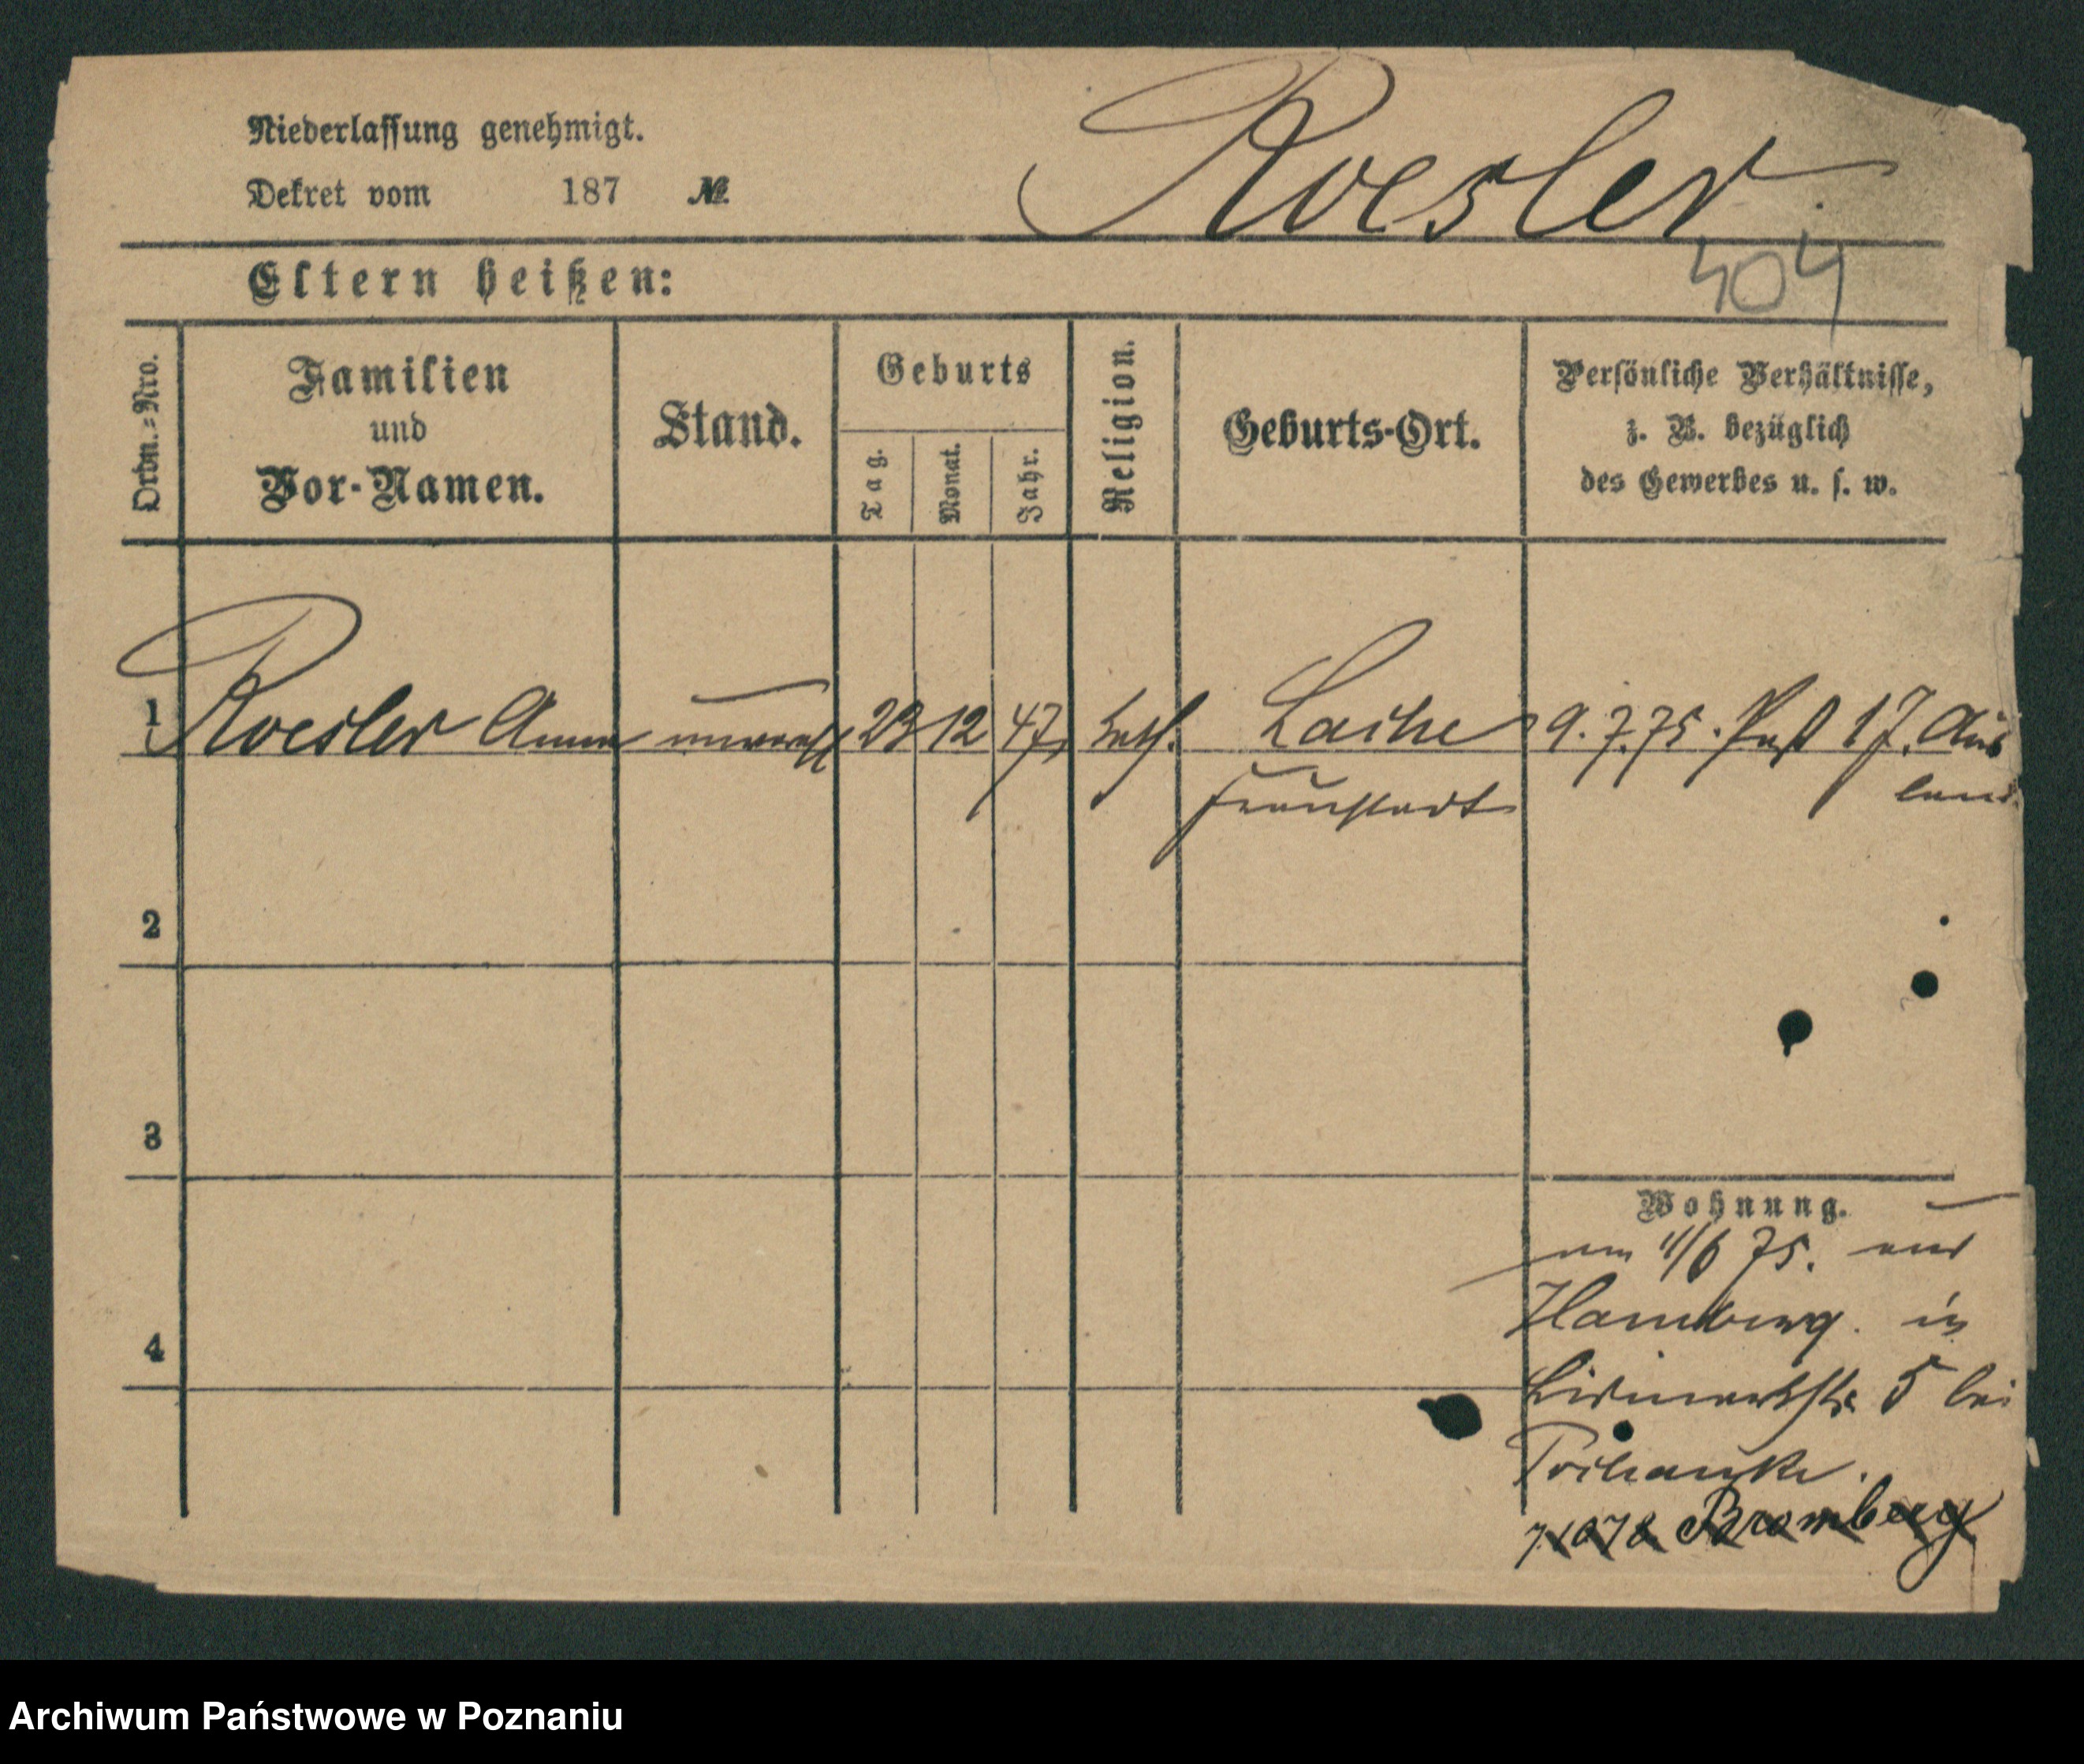 Niederlassung genehmigt.
Dekret vom 187 №
Roesler
404
Eltern heißen:
Ordn.-Nro.
Familien
und
Vor-Namen.
Stand.
Geburts
Tag.
Monat.
Jahr.
Religion.
Geburts-Ort.
Persönliche Verhältnisse,
z. B. bezüglich
des Gewerbes u. s. w.
1 Roesler Anna unvereh 23 12 47, kath. 9.7.75. Paß 17. Aus
land
Fraustadt
2
3
4
Wohnung.
am 11/6 75. aus
Hamburg. in
5 bei
Bromberg
Archiwum Państwowe w Poznaniu